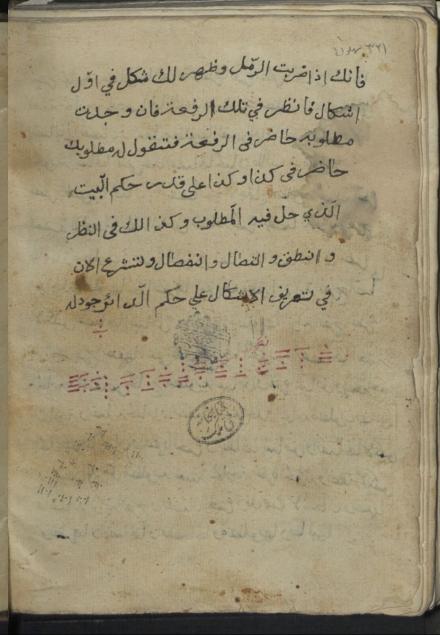 فانك اذا ضربت الرمل وظهر لك شكل في اوّل
اشكال فانظر في تلك الرقعة فان وجدت
مطلوبه حاضر في الرقعة فتقول له مطلوبك
حاضر في كذا وكذا على قدر حكم البيت
الذي حل فيه المطلوب وكذالك في النظر
و انطق و اتصال و انفصال ولنشرع الان
في تعريف الاشكال على حكم الدائر جودله